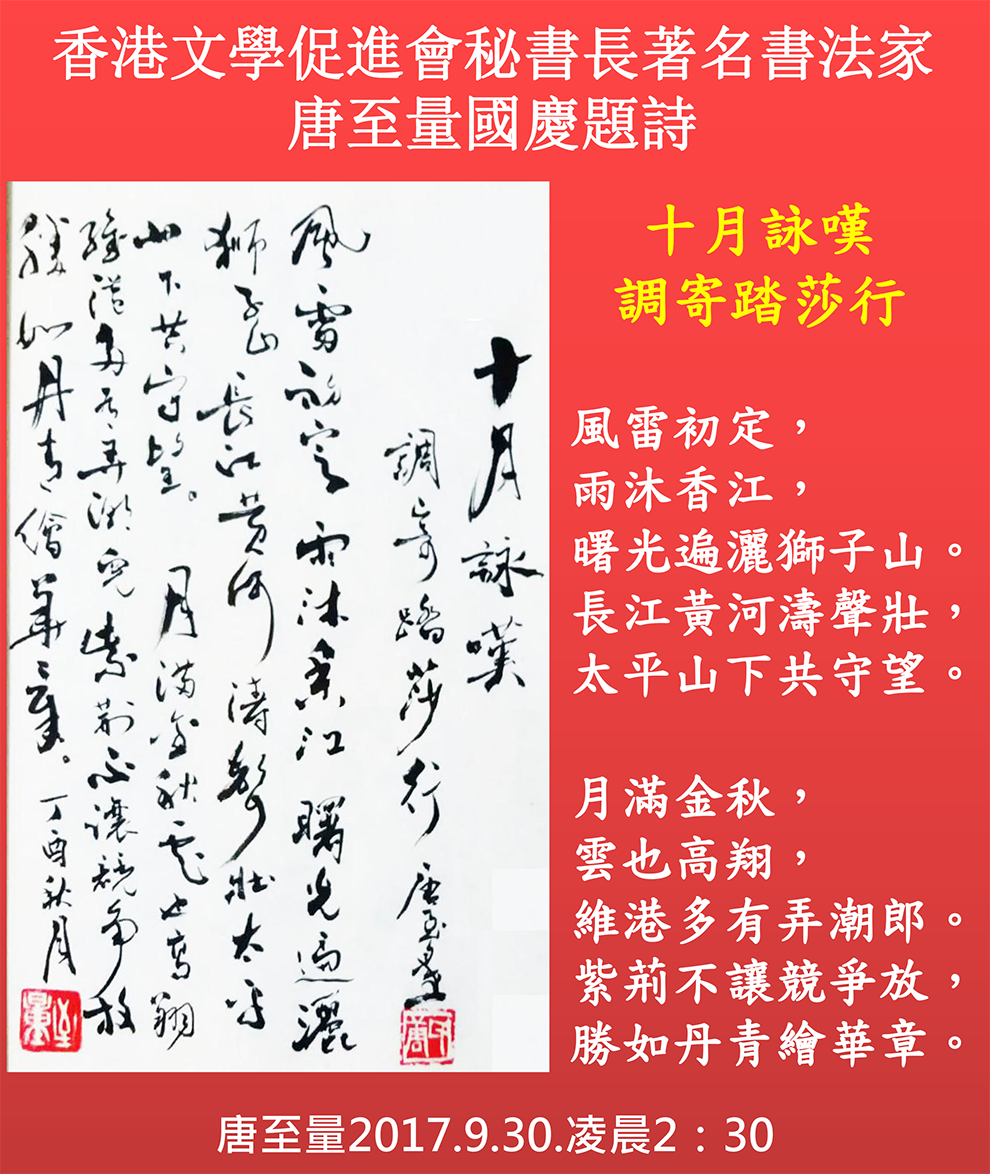 香港文學促進會秘書長著名書法家
唐至量國慶題詩
十月詠嘆
調寄踏莎行 唐至量
風雷初定 雨沐香江 曙光遍灑
獅子山 長江黃河 濤聲壯 太平
山下共守望。 月滿金秋 雲也高翔
維港多有弄潮兒 紫荊不讓競爭放
勝如丹青繪華章。 丁酉秋月
十月詠嘆
調寄踏莎行
風雷初定，
雨沐香江，
曙光遍灑獅子山。
長江黃河濤聲壯，
太平山下共守望。
月滿金秋，
雲也高翔，
維港多有弄潮郎。
紫荊不讓競爭放，
勝如丹青繪華章。
唐至量2017.9.30.凌晨2：30